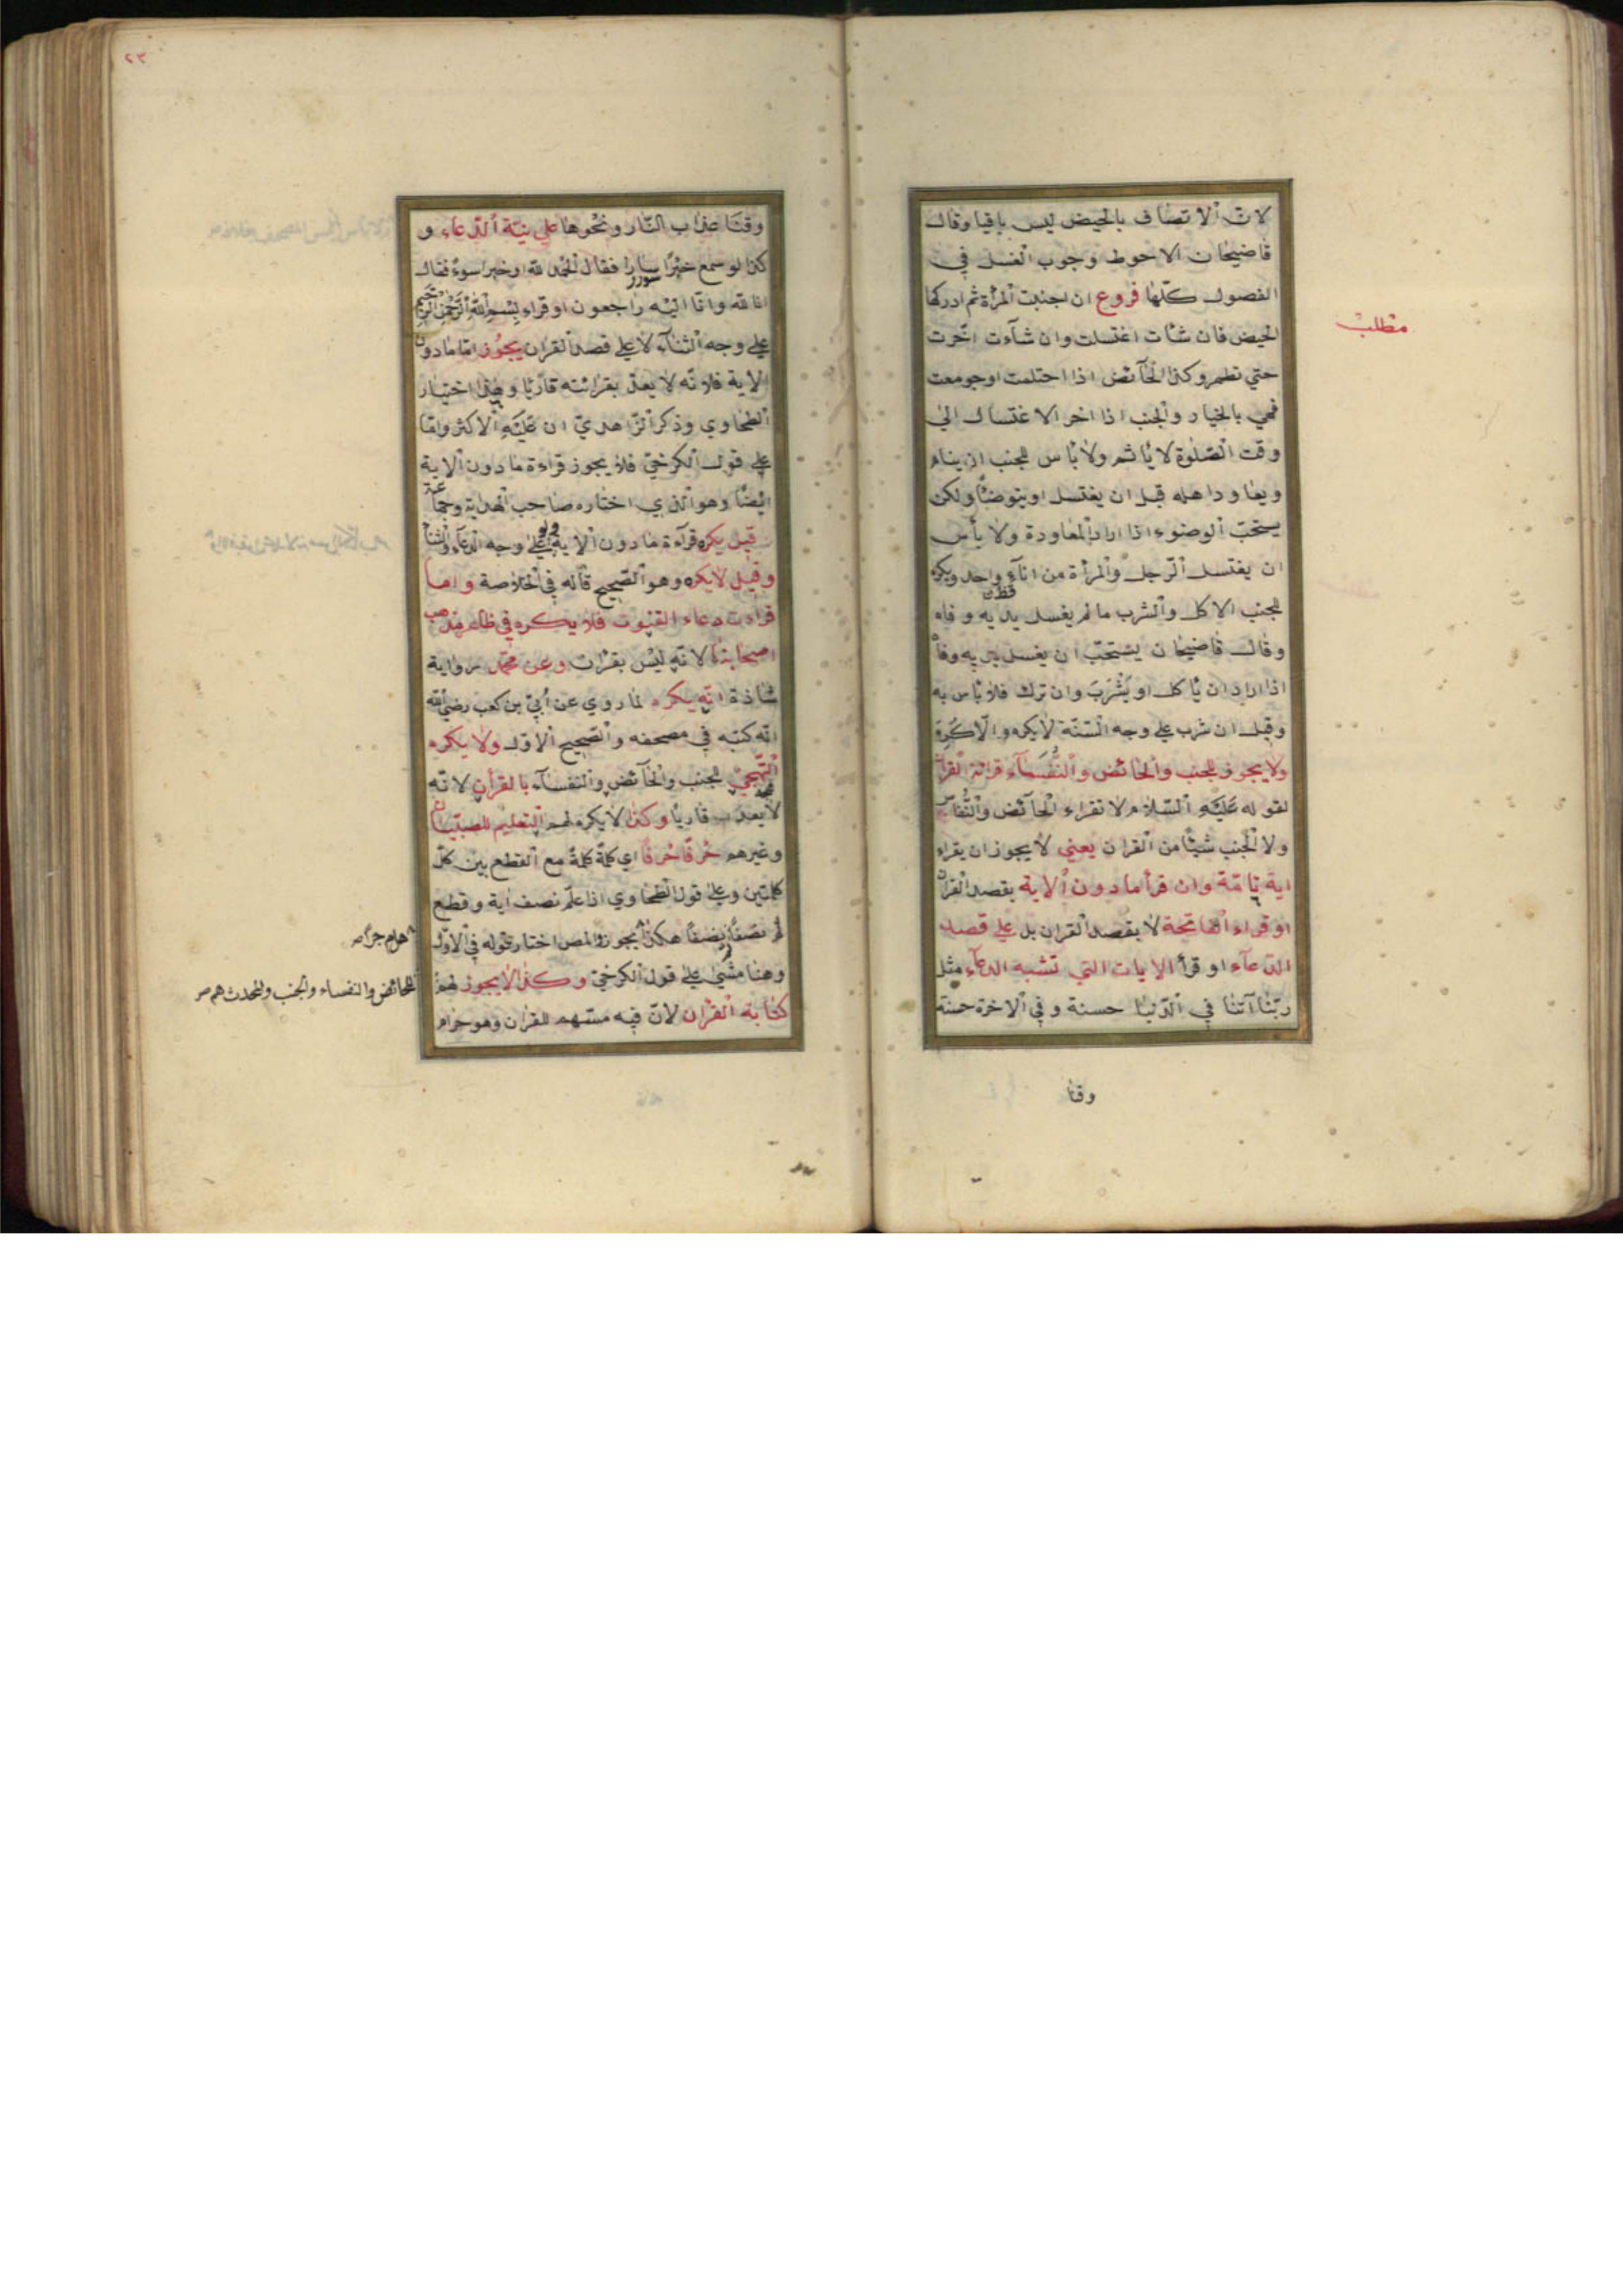 لان الاتصاف بالحيض ليس باقيا وقال
قاضيخان الاحوط وجوب الغسل في
الفصول كلّها فروع ان اجنبت المرأة ثم ادركها
مطلب
الحيض فان شآت اغتسلت وان شآءت اخّرت
حتي تطهر وكذا الحآئض اذا احتلمت او جومعت
فهي بالخيار والجنب اذا اخر الاغتسال الي
وقت الصّلوة لا يأثم ولا بأس للجنب ان ينام
ويعاود اهله قبل ان يغتسل او يتوضأ ولكن
يستحبّ الوضوء اذا اراد المعاودة ولا بأس
ان يغتسل الرّجل والمرأة من انآء واحد ويكره
للجنب الاكل والشرب ما لم يغسل يديه وفاه
وقال قاضيخان يستحبّ ان يغسل يديه وفاه
اذا اراد ان يأكل او يَشْرَبَ وان ترك فلا بأس به
وقيل ان شرب علي وجه السّنّة لا يكره والّا كَرِهَ
ولا يجوز للجنب والحائض والنُّفَسَآء قرائة القرأن
لقوله عَلَيْهِ السّلام لا تقراء الحآئض والنُّفاس
ولا الجنب شيئًا من القران يعني لا يجوز ان يقراء
اية تامّة وان قرأ ما دون الاية بقصد القرأن
او قراء الفاتحة لا بقصد القران بل علي قصد
الدّعآء او قرأ الايات التي تشبه الدعآء مثل
ربّنا آتنا في الدّنيا حسنة وفي الاخرة حسنة
وقنا
٢٣
وقنَا عذاب النّار ونحْوها علي نيّة الدّعآء و
كذا لو سمع خبرًا سارا فقال الحمْد لله او خبرا سوءً فقال
انا لله وانّا اليْه راجعون او قراء بِسْمِ اللهِ الرَّحْمٰنِ الرَّحِيمِ
علي وجه الثنآء لا علي قصد القران يجوز امّا ما دون
الاية فلانّه لا يعدّ بقرائته قاريًا وهذا اختيار
الطحاوي وذكر الزّاهديّ ان عَلَيْهِ الاكثر وامّا
علي قول الكرخيّ فلا يجوز قراءة ما دون الاية
ايضًا وهو الذي اختاره صاحب الهداية وجماعة
قيل يكره قرآءة ما دون الاية علي وجه الدعآء والثنآء
وقيل لا يكره وهو الصّحيح قاله في الخلاصة وامـا
قرآءت دعاء القنوت فلا يكره في ظاهر مذهب
اصحابنا لانّه ليْس بقرْان وعن محمّد رواية
شاذة انّه يكره لما روي عن اُبيّ بن كعب رضي الله
انّه كتبه في مصحفه والصّحيح الاوّل ولا يكره
التّهجيّ للجنب والحآئض والنفسآء بالقرأن لانّه
لا يعد به قاريًا وكذا لا يكره لهم التعليم للصبيان
وغيرهم حَرفًا حَرفًا اي كلمةً كلمةً مع القطع بين كلّ
كلمتين وعلي قول الطحاوي اذا علّم نصف اية وقطع
ثم نصفًا نصفًا هكذا يجوز والمص اختار قوله في الاوّل
هلم جرًّا صح
وهنا مشي علي قول الكرخيّ وكذا لا يجوز لهم
للحائض والنفساء والجنب والمحدث
كتابة القرْان لانّ فيه مسّهم للقران وهو حرام